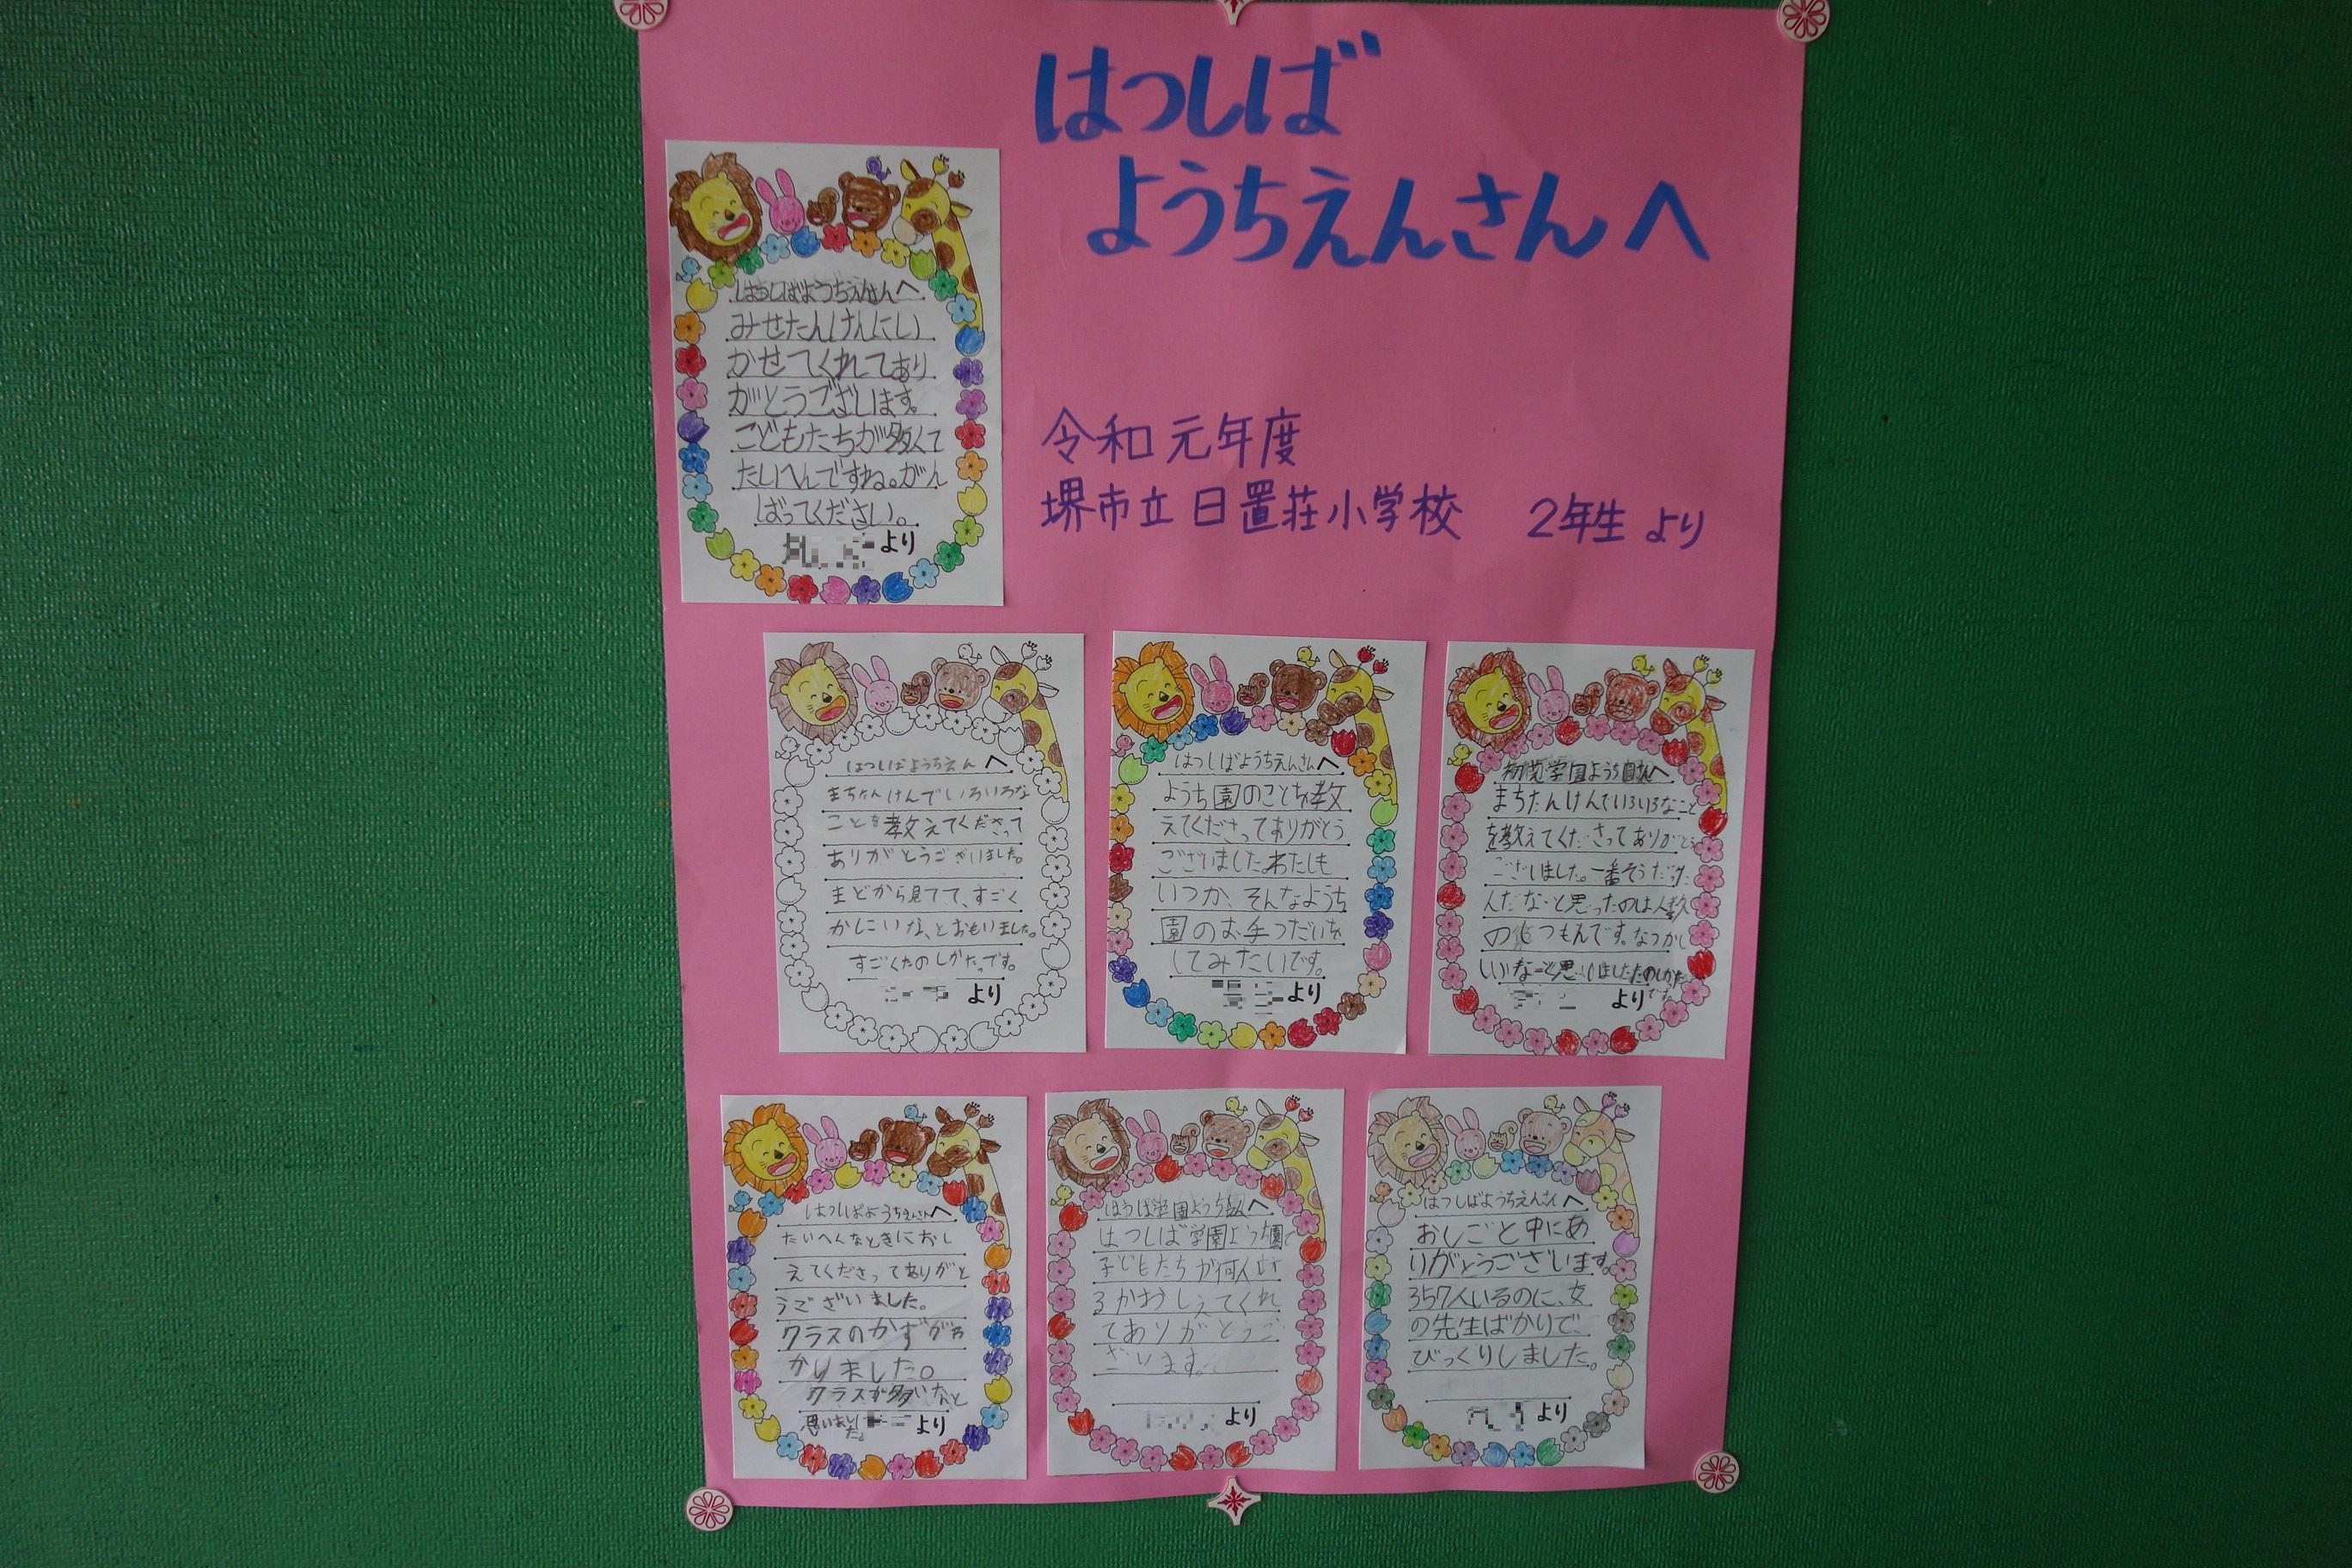 はつしば
ようちえんさんへ
令和元年度
堺市立日置荘小学校 2年生より
はつしばようちえんさんへ
みせたんけんにい
かせてくれてあり
がとうございます。
こどもたちが多くて
たいへんですね。がん
ばってください。
より
はつしばようちえんへ
まちたんけんでいろいろな
ことを教えてくださって
ありがとうございました。
まどから見てて、すごく
かしこいな、とおもいました。
すごくたのしかったです。
より
はつしばようちえんさんへ
ようち園のことを教
えてくださってありがとう
ございました。わたしも
いつか、そんなようち
園のお手つだいを
してみたいです。
より
初芝学園ようち園さんへ
まちたんけんでいろいろなこと
を教えてくださってありがとう
ございました。一番そうだった
んだなーと思ったのは人数
のひつもんです。なつかし
いいなーと思いましたたのしかった
です。
より
はつしばようちえんさんへ
たいへんなときにおし
えてくださってありがと
うございました。
クラスのかずがわ
かりました。
クラスが多いなと
思いました。
より
はつしば学園ようち園へ
はつしば学園ようち園で
子どもたちが何人い
るかおしえてくれ
てありがとうご
ざいます。
より
はつしばようちえんさんへ
おしごと中にあ
りがとうございます。
357人いるのに、女
の先生ばかりで、
びっくりしました。
より